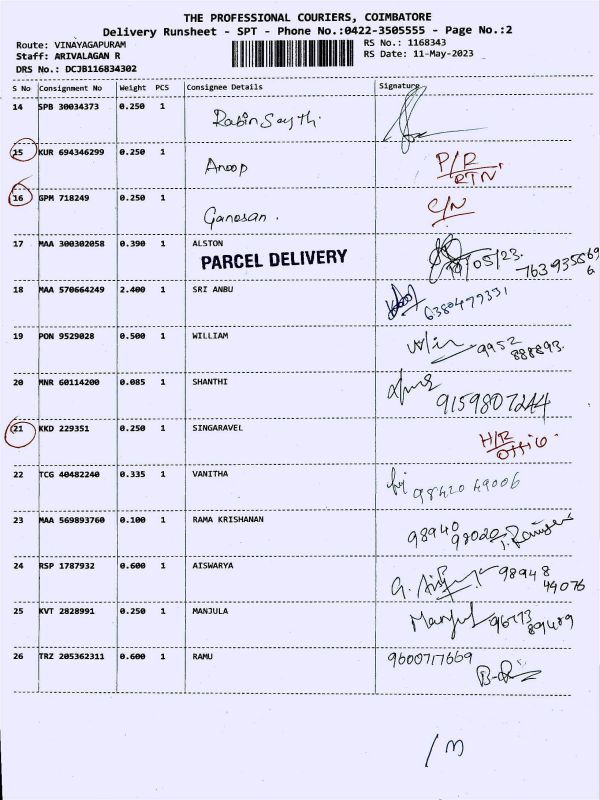 THE PROFESSIONAL COURIERS, COIMBATORE
Delivery Runsheet - SPT - Phone No.:0422-3505555 - Page No.:2
Route: VINAYAGAPURAM RS No.: 1168343
Staff: ARIVALAGAN R RS Date: 11-May-2023
DRS No.: DCJB116834302
S No Consignment No Weight PCS Consignee Details Signature
14 SPB 30034373 0.250 1
15 KUR 694346299 0.250 1 Anoop P/R
RTN
16 GPM 718249 0.250 1 Ganesan. C/N
17 MAA 300302058 0.390 1 ALSTON
PARCEL DELIVERY
18 MAA 570664249 2.400 1 SRI ANBU 6380479331
19 PON 9529028 0.500 1 WILLIAM 9952
888893.
20 MNR 60114200 0.085 1 SHANTHI
9159807244
21 KKD 229351 0.250 1 SINGARAVEL H/R
office.
22 TCG 40482240 0.335 1 VANITHA 98420 49006
23 MAA 569893760 0.100 1 RAMA KRISHANAN 98940
98020
24 RSP 1787932 0.600 1 AISWARYA 98948
49076
25 KVT 2828991 0.250 1 MANJULA
26 TRZ 205362311 0.600 1 RAMU 9600717669